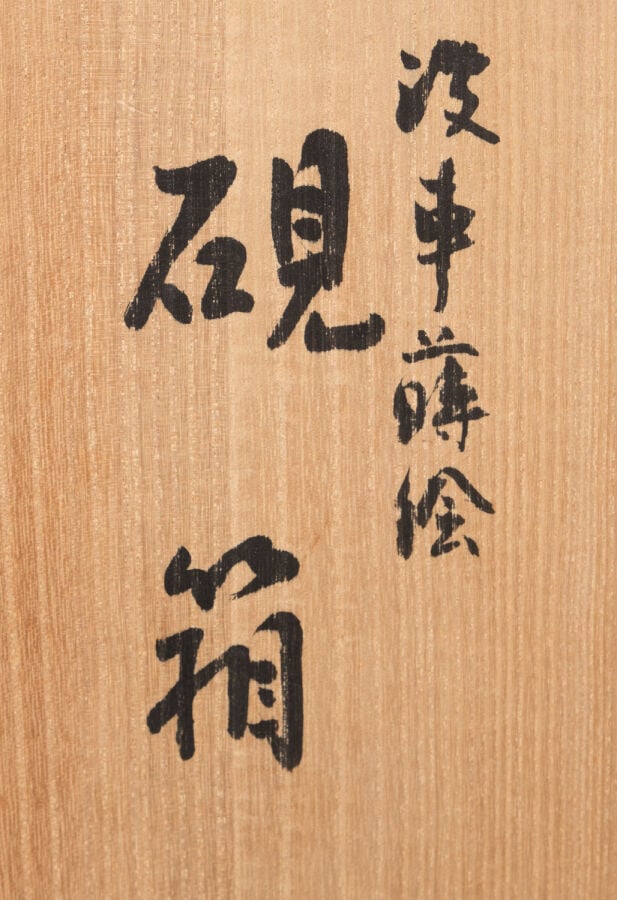 波車蒔絵
硯箱